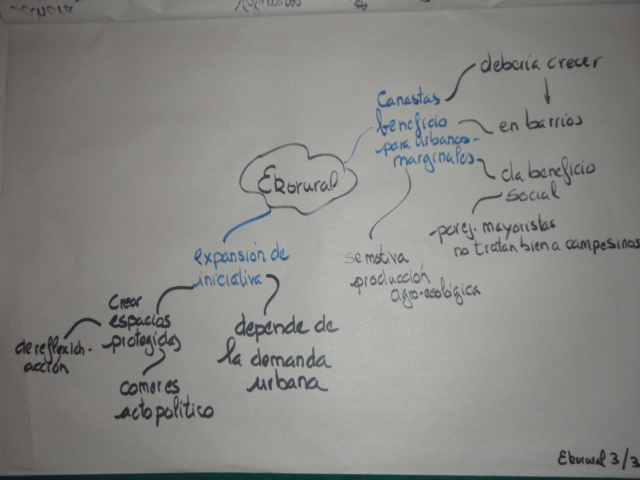 debería crecer
Canastas
beneficio
para urbanos-
marginales
en barrios
da beneficio
social
-por ej. mayoristas
no tratan bien a campesinos
Ekorural
se motiva
producción
agro-ecológica
expansión de
iniciativa
Crear
espacios
protegidos
de reflexión-
acción
comer es
acto político
depende de
la demanda
urbana
Ekorural 3/3